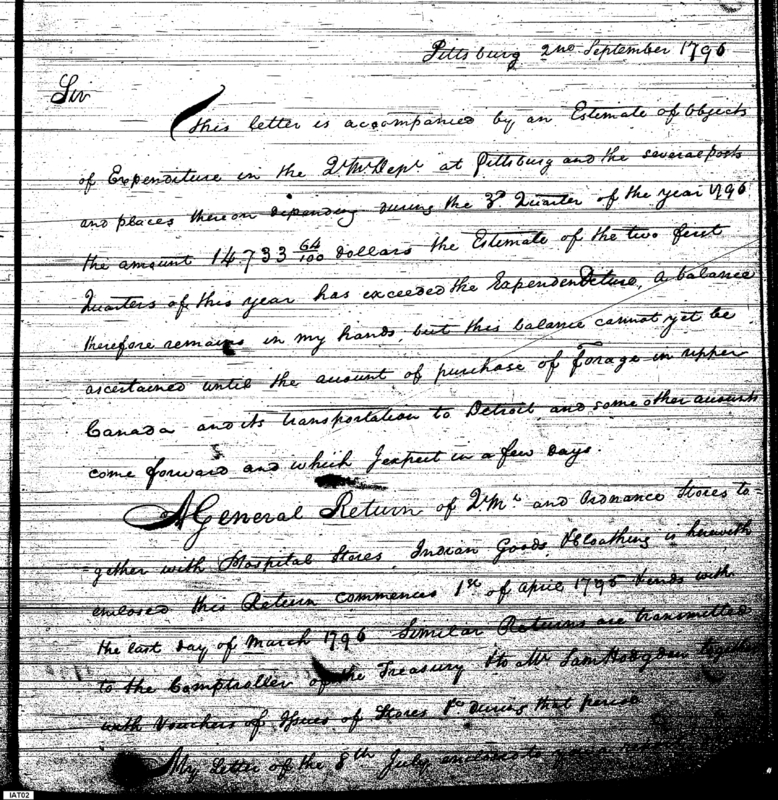 Pittsburg 2nd September 1796
Sir
This letter is accompanied by an Estimate of Objects
of Expenditure in the QrMrs Dept at Pittsburg and the several posts
and places thereon depending during the 3d Quarter of the year 1796
the amount 14733 64/100 dollars the Estimate of the two first
Quarters of this year has exceeded the Expenditure, a balance
therefore remains in my hands, but this balance cannot yet be
ascertained until the amount of purchase of forage in upper
Canada and its transportation to Detroit and some other accounts
come forward and which I expect in a few days
A General Return of QrMrs and Ordnance Stores to=
=gether with Hospital Stores, Indian Goods, & Cloathing is herewith
enclosed this Return commences 1st of April 1795 & ends with
the last day of March 1796 Similar Returns are transmitted
to the Comptroller of the Treasury & to Mr Saml Hodgden together
with Vouchers of Issues of Stores &c during that period
My Letter of the 8th July
IAT02